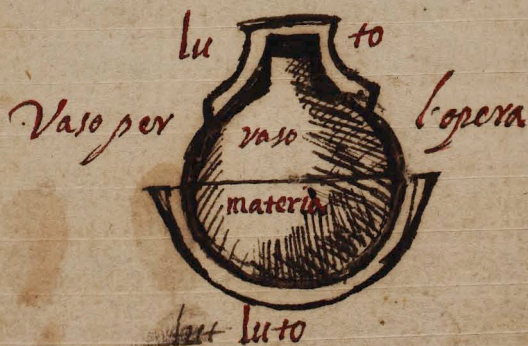 lu to
Vaso per l'opera
vaso
materia
lut luto